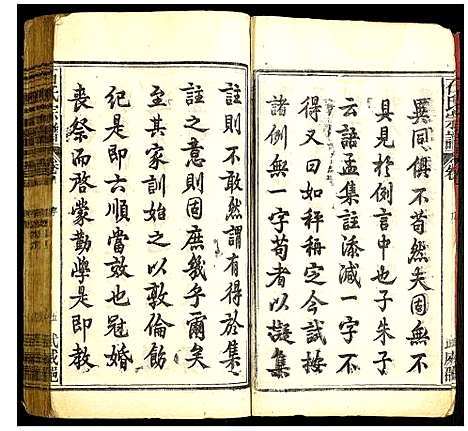 異同俱不苟然矣固無不
具見於例言中也子朱子
云語孟集註添減一字不
得又曰如秤稱定今試按
諸例無一字苟者以擬集
註則不敢然謂有得於集
註之意則固庶幾乎爾矣
至其家訓始之以敦倫飭
紀是即六順當效也冠婚
喪祭而啓蒙勸學是即教
氏宗譜